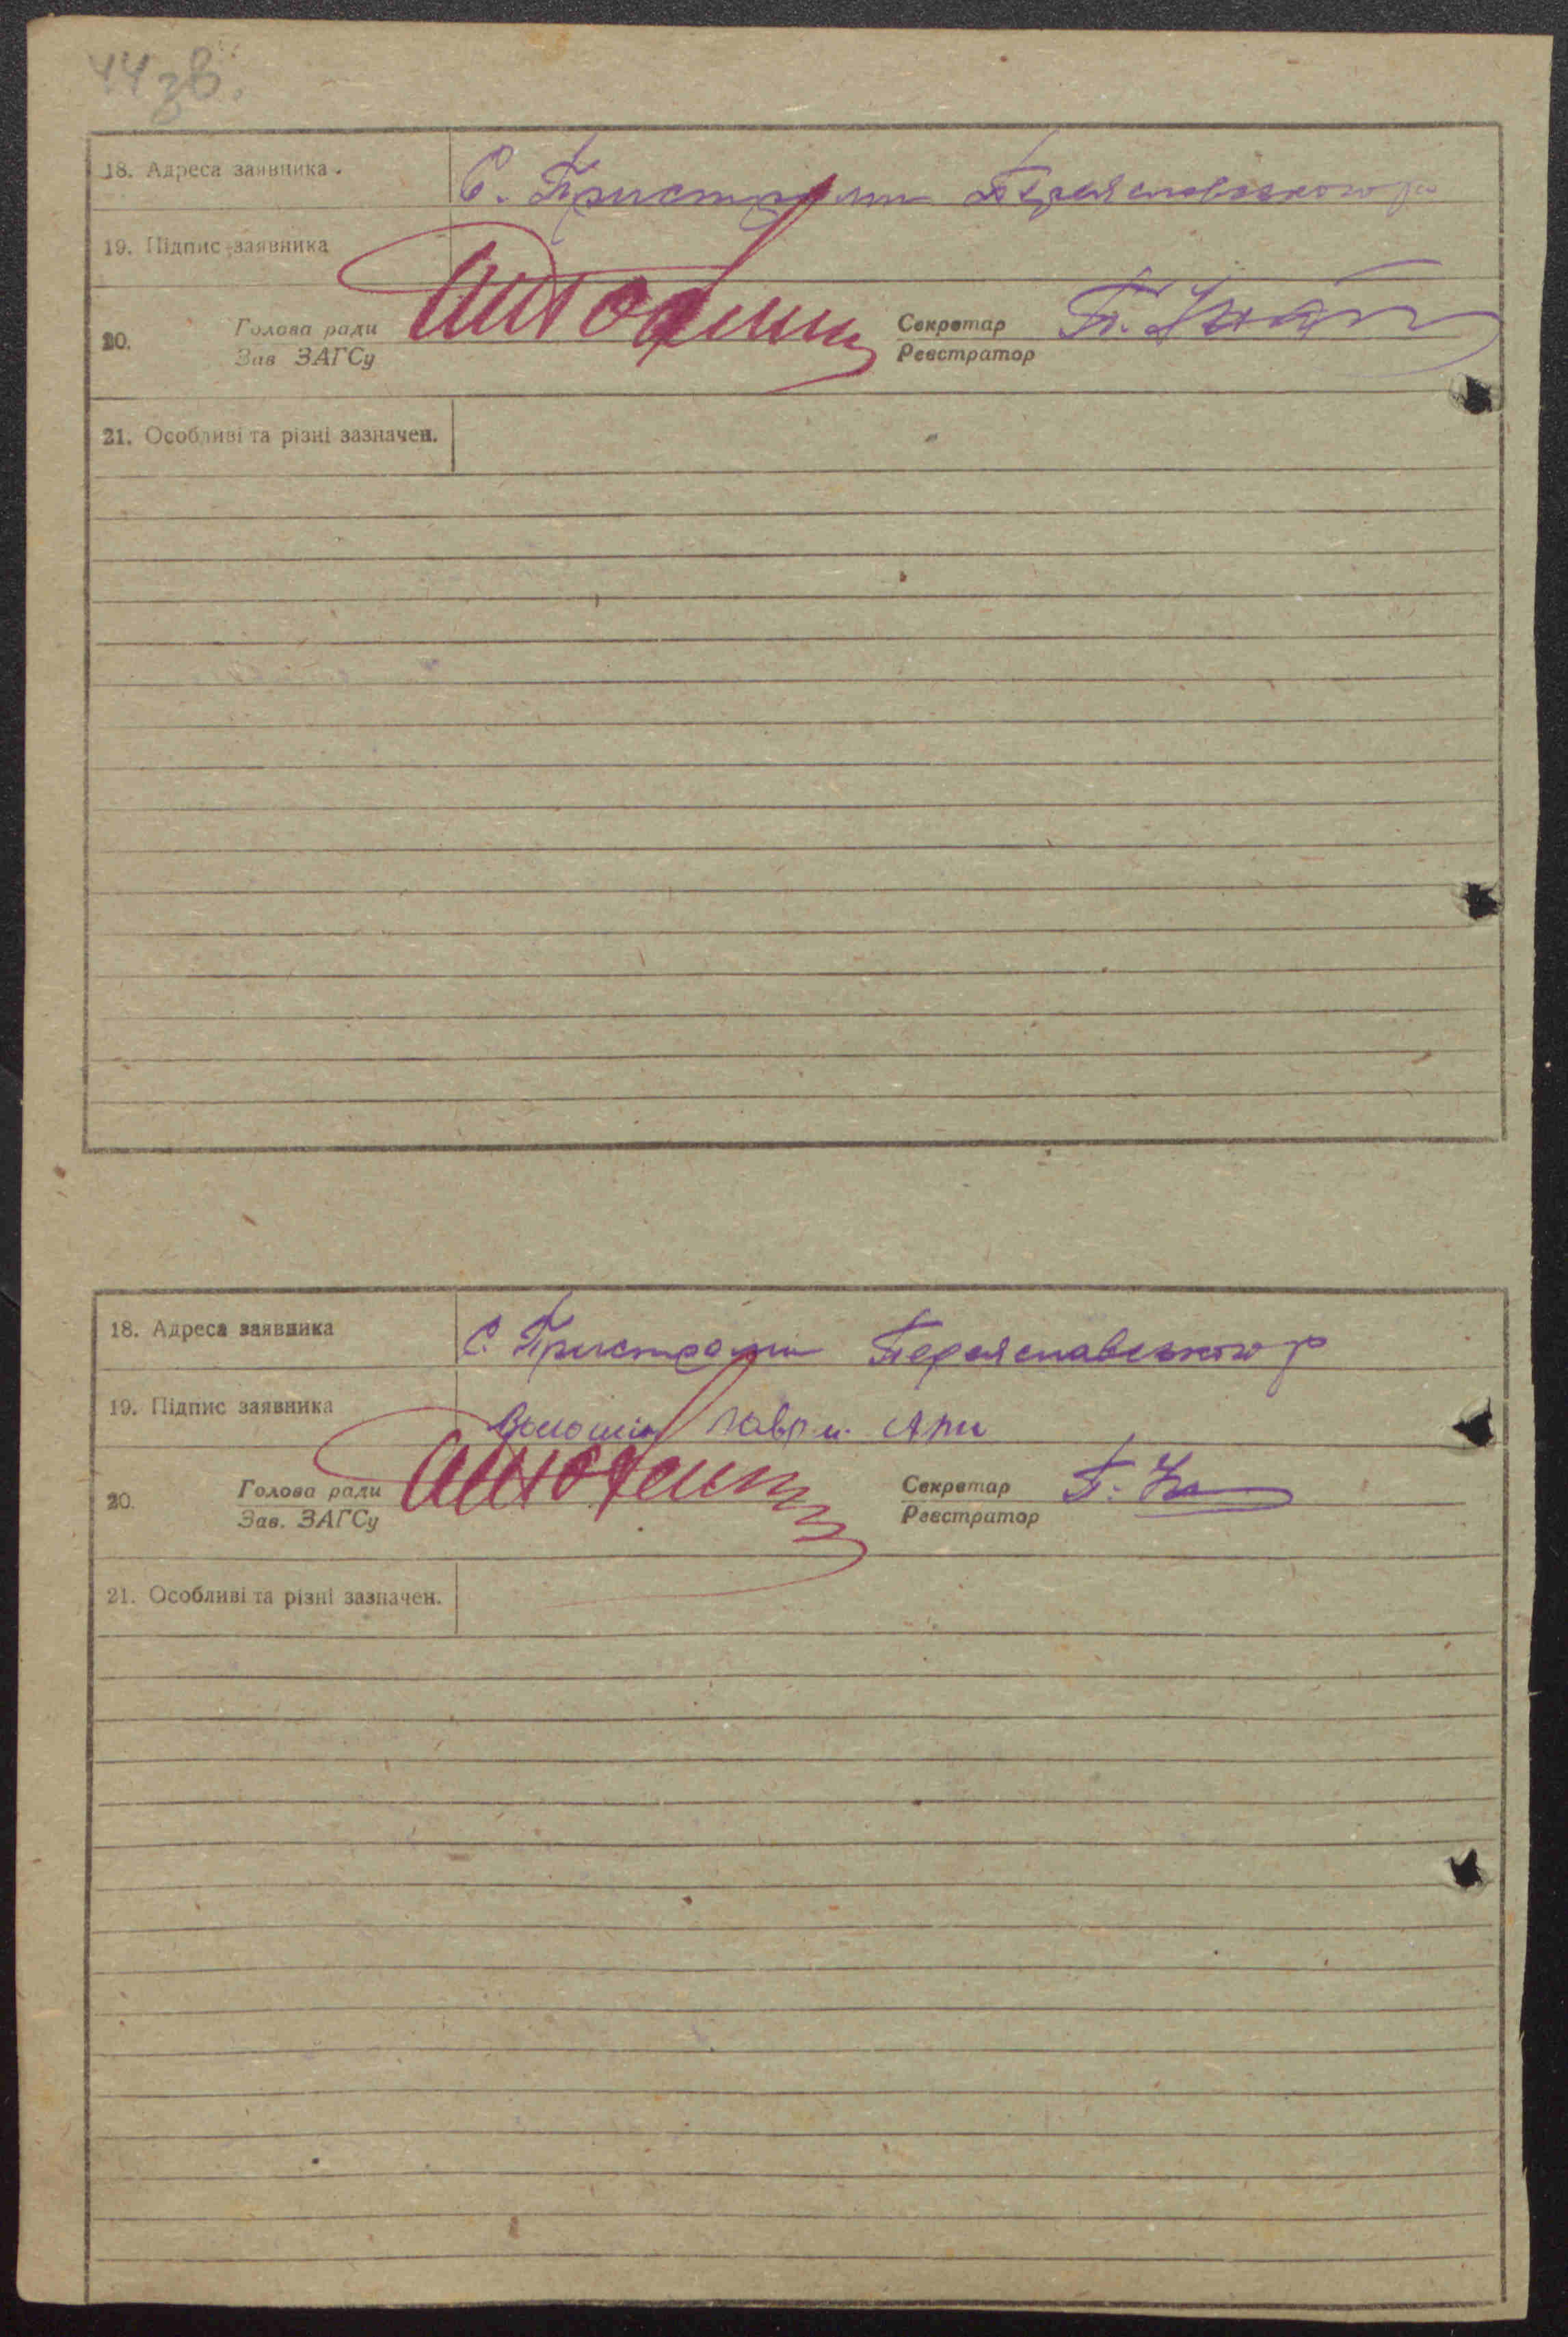 44зв.
18. Адреса заявника. С. Пристроми Переяславського р
19. Підпис заявника
20. Голова ради Секретар П.
Зав ЗАГСу Реєстратор
21. Особливі та різні зазначен.
18. Адреса заявника С. Пристроми Переяславського р
19. Підпис заявника
20. Голова ради Секретар П.
Зав. ЗАГСу Реєстратор
21. Особливі та різні зазначен.